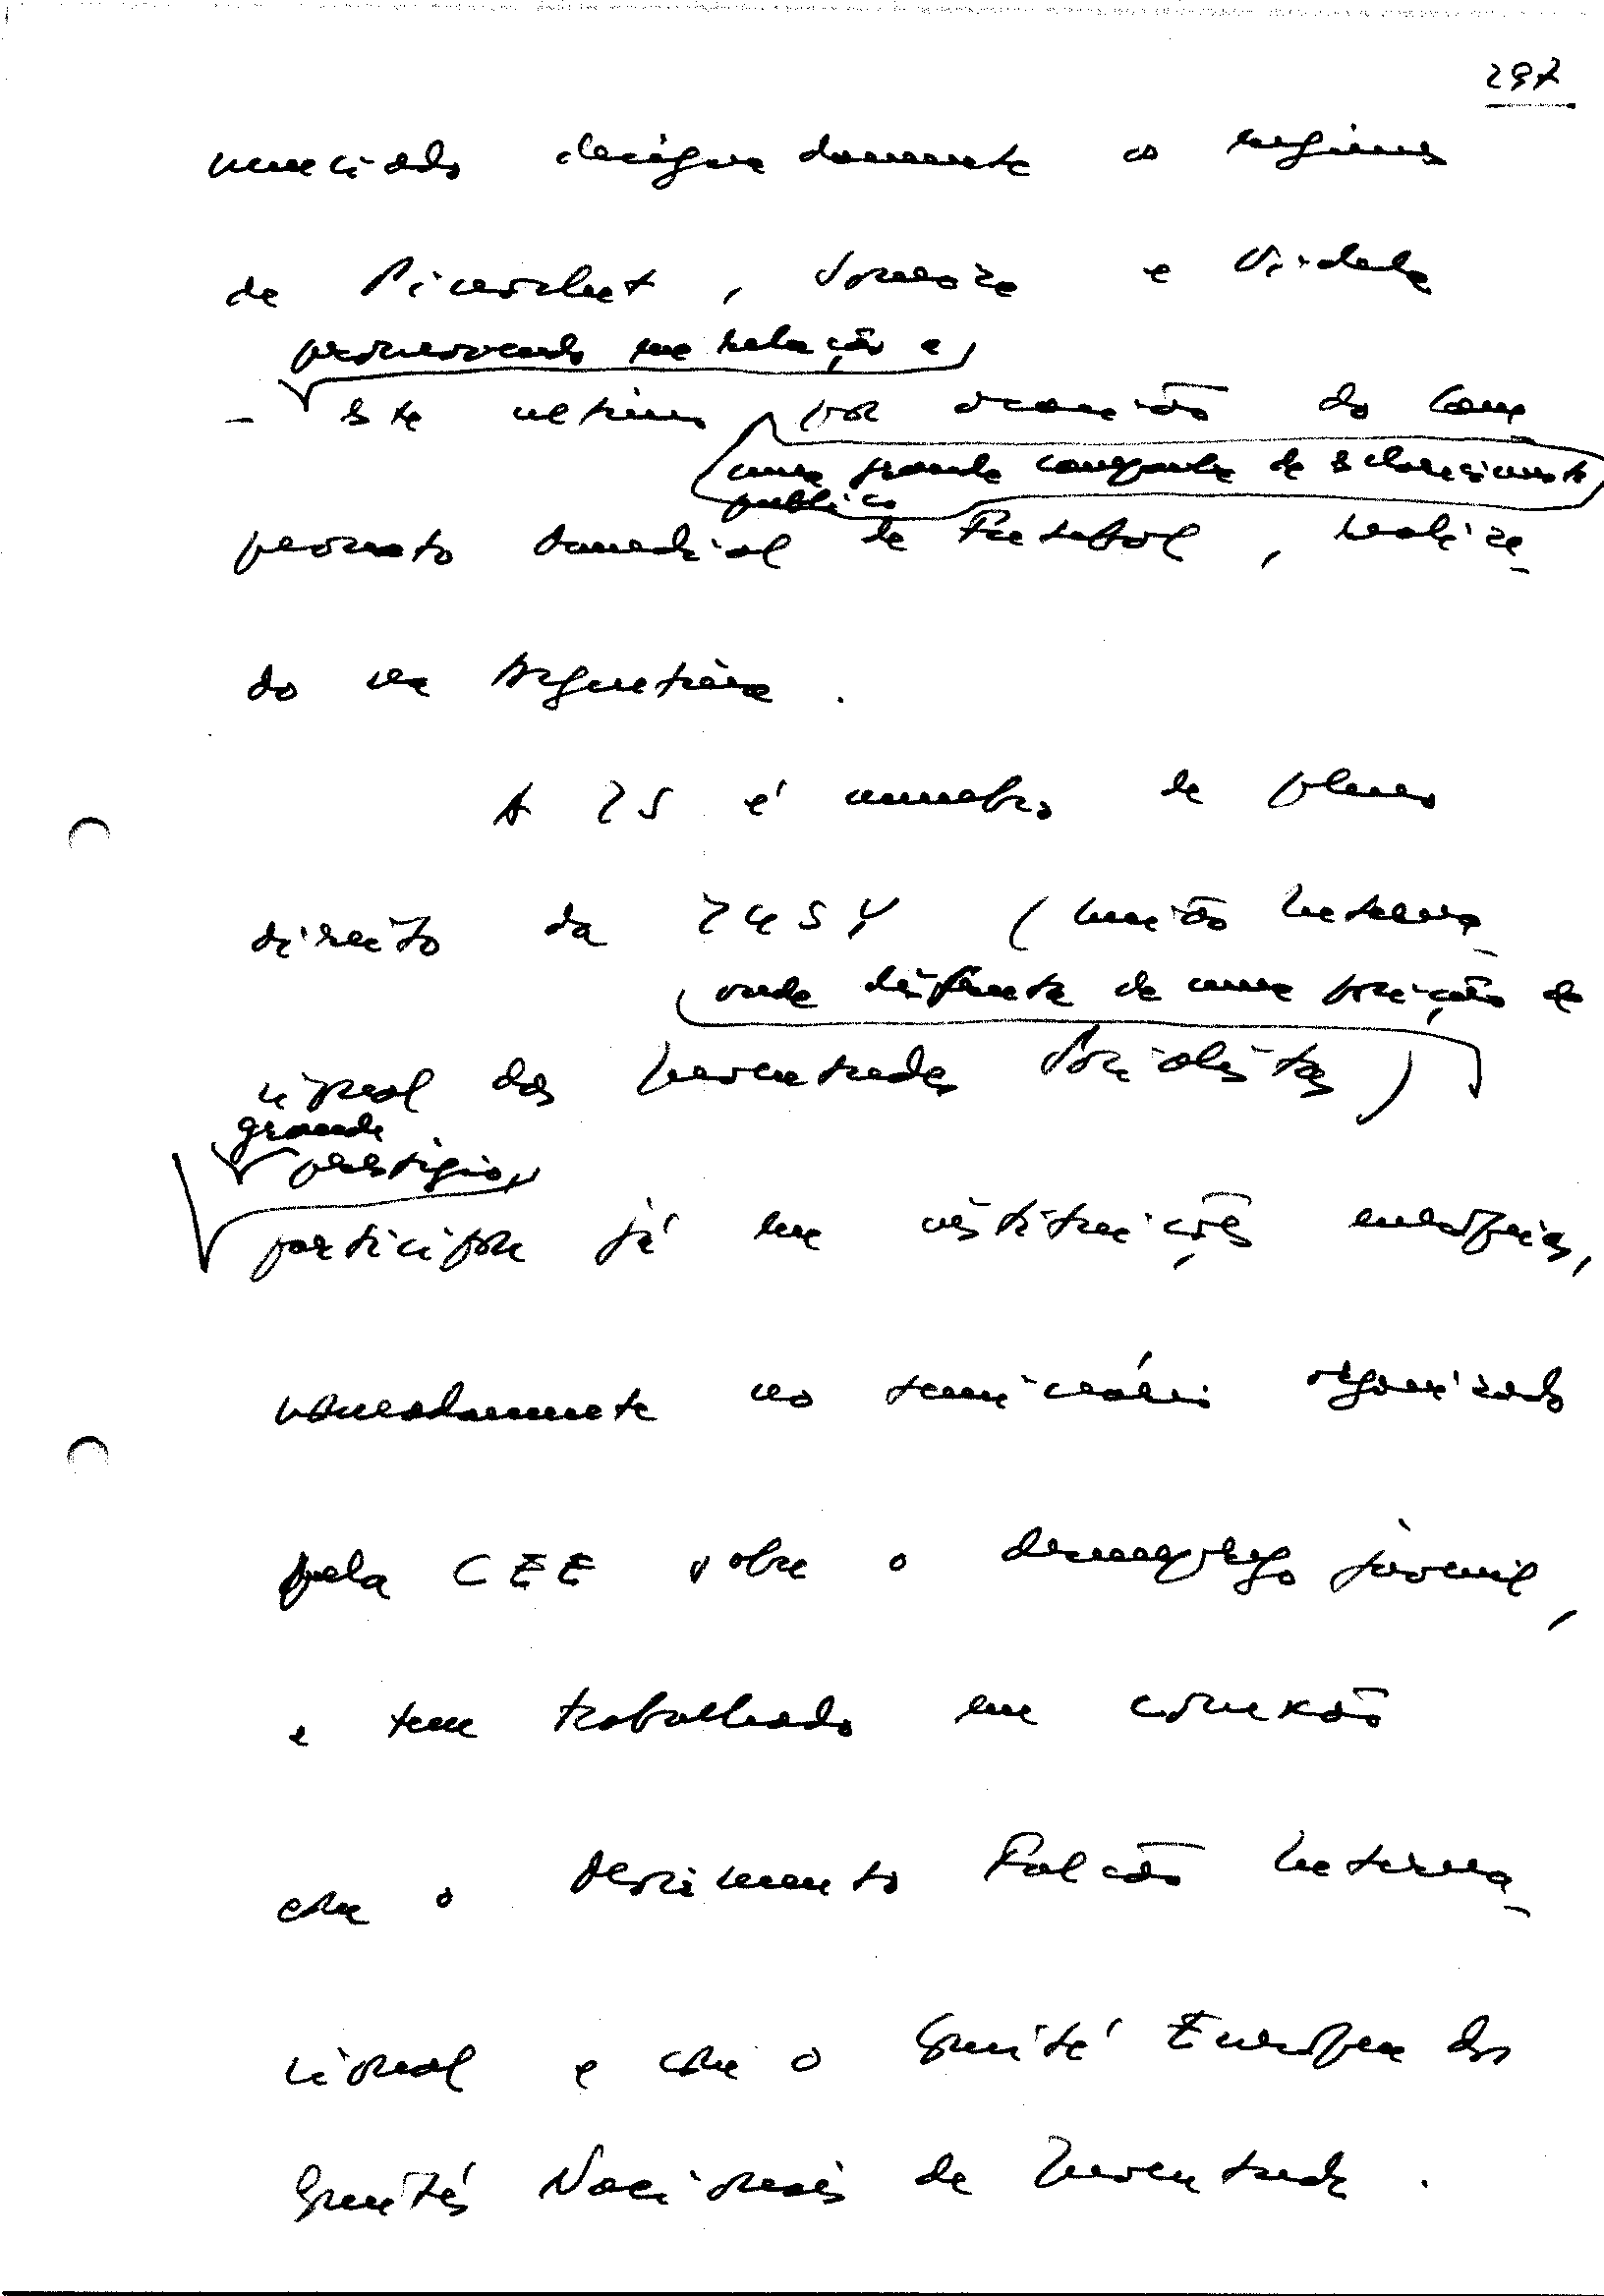 297
nunciado designadamente os regimes
de Pinochet, Somoza e Videla
promovendo em relação a
- este ultimo por ocasião do Cam
uma grande campanha de esclarecimento
público
peonato Mundial de Futebol, realiza-
do na Argentina.
A JS é membro de pleno
direito da IUSY (União Interna-
onde disfruta de uma posição de
cional das Juventudes Socialistas)
grande
prestígio,
participou já em instituições europeias,
nomeadamente no seminário organizado
pela CEE sobre o desemprego juvenil,
e tem trabalhado em conexão
com o Movimento Falcão Interna-
cional e com o Comité Europeu dos
Comités Nacionais de Juventude.